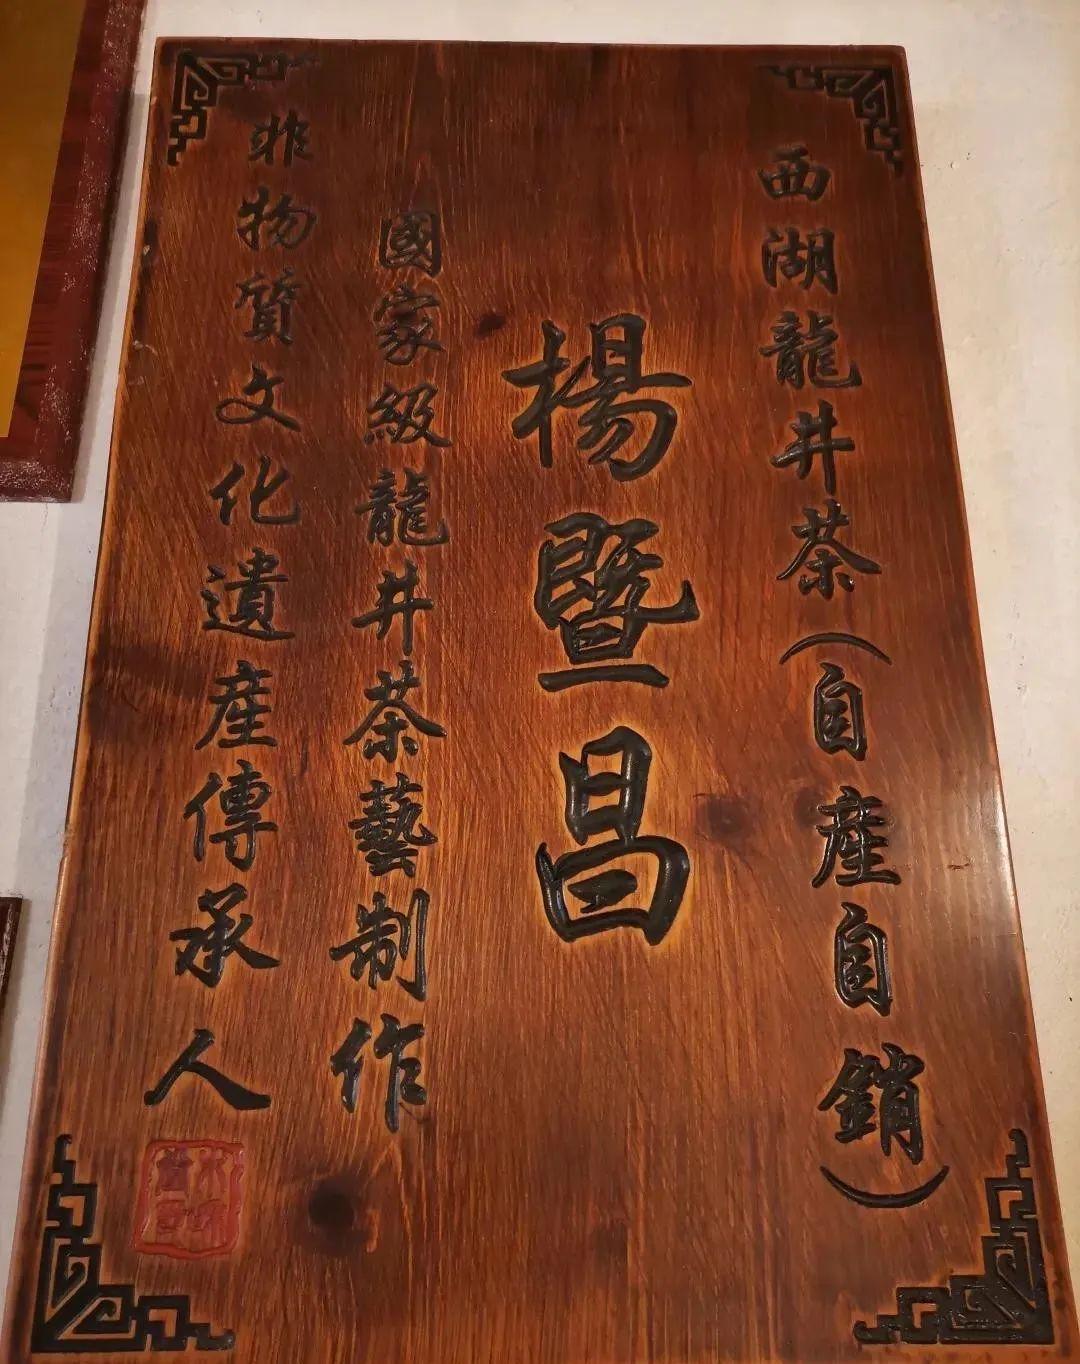 西湖龍井茶(自産自銷)
楊暨昌
國家級龍井茶藝制作
非物質文化遺産傳承人